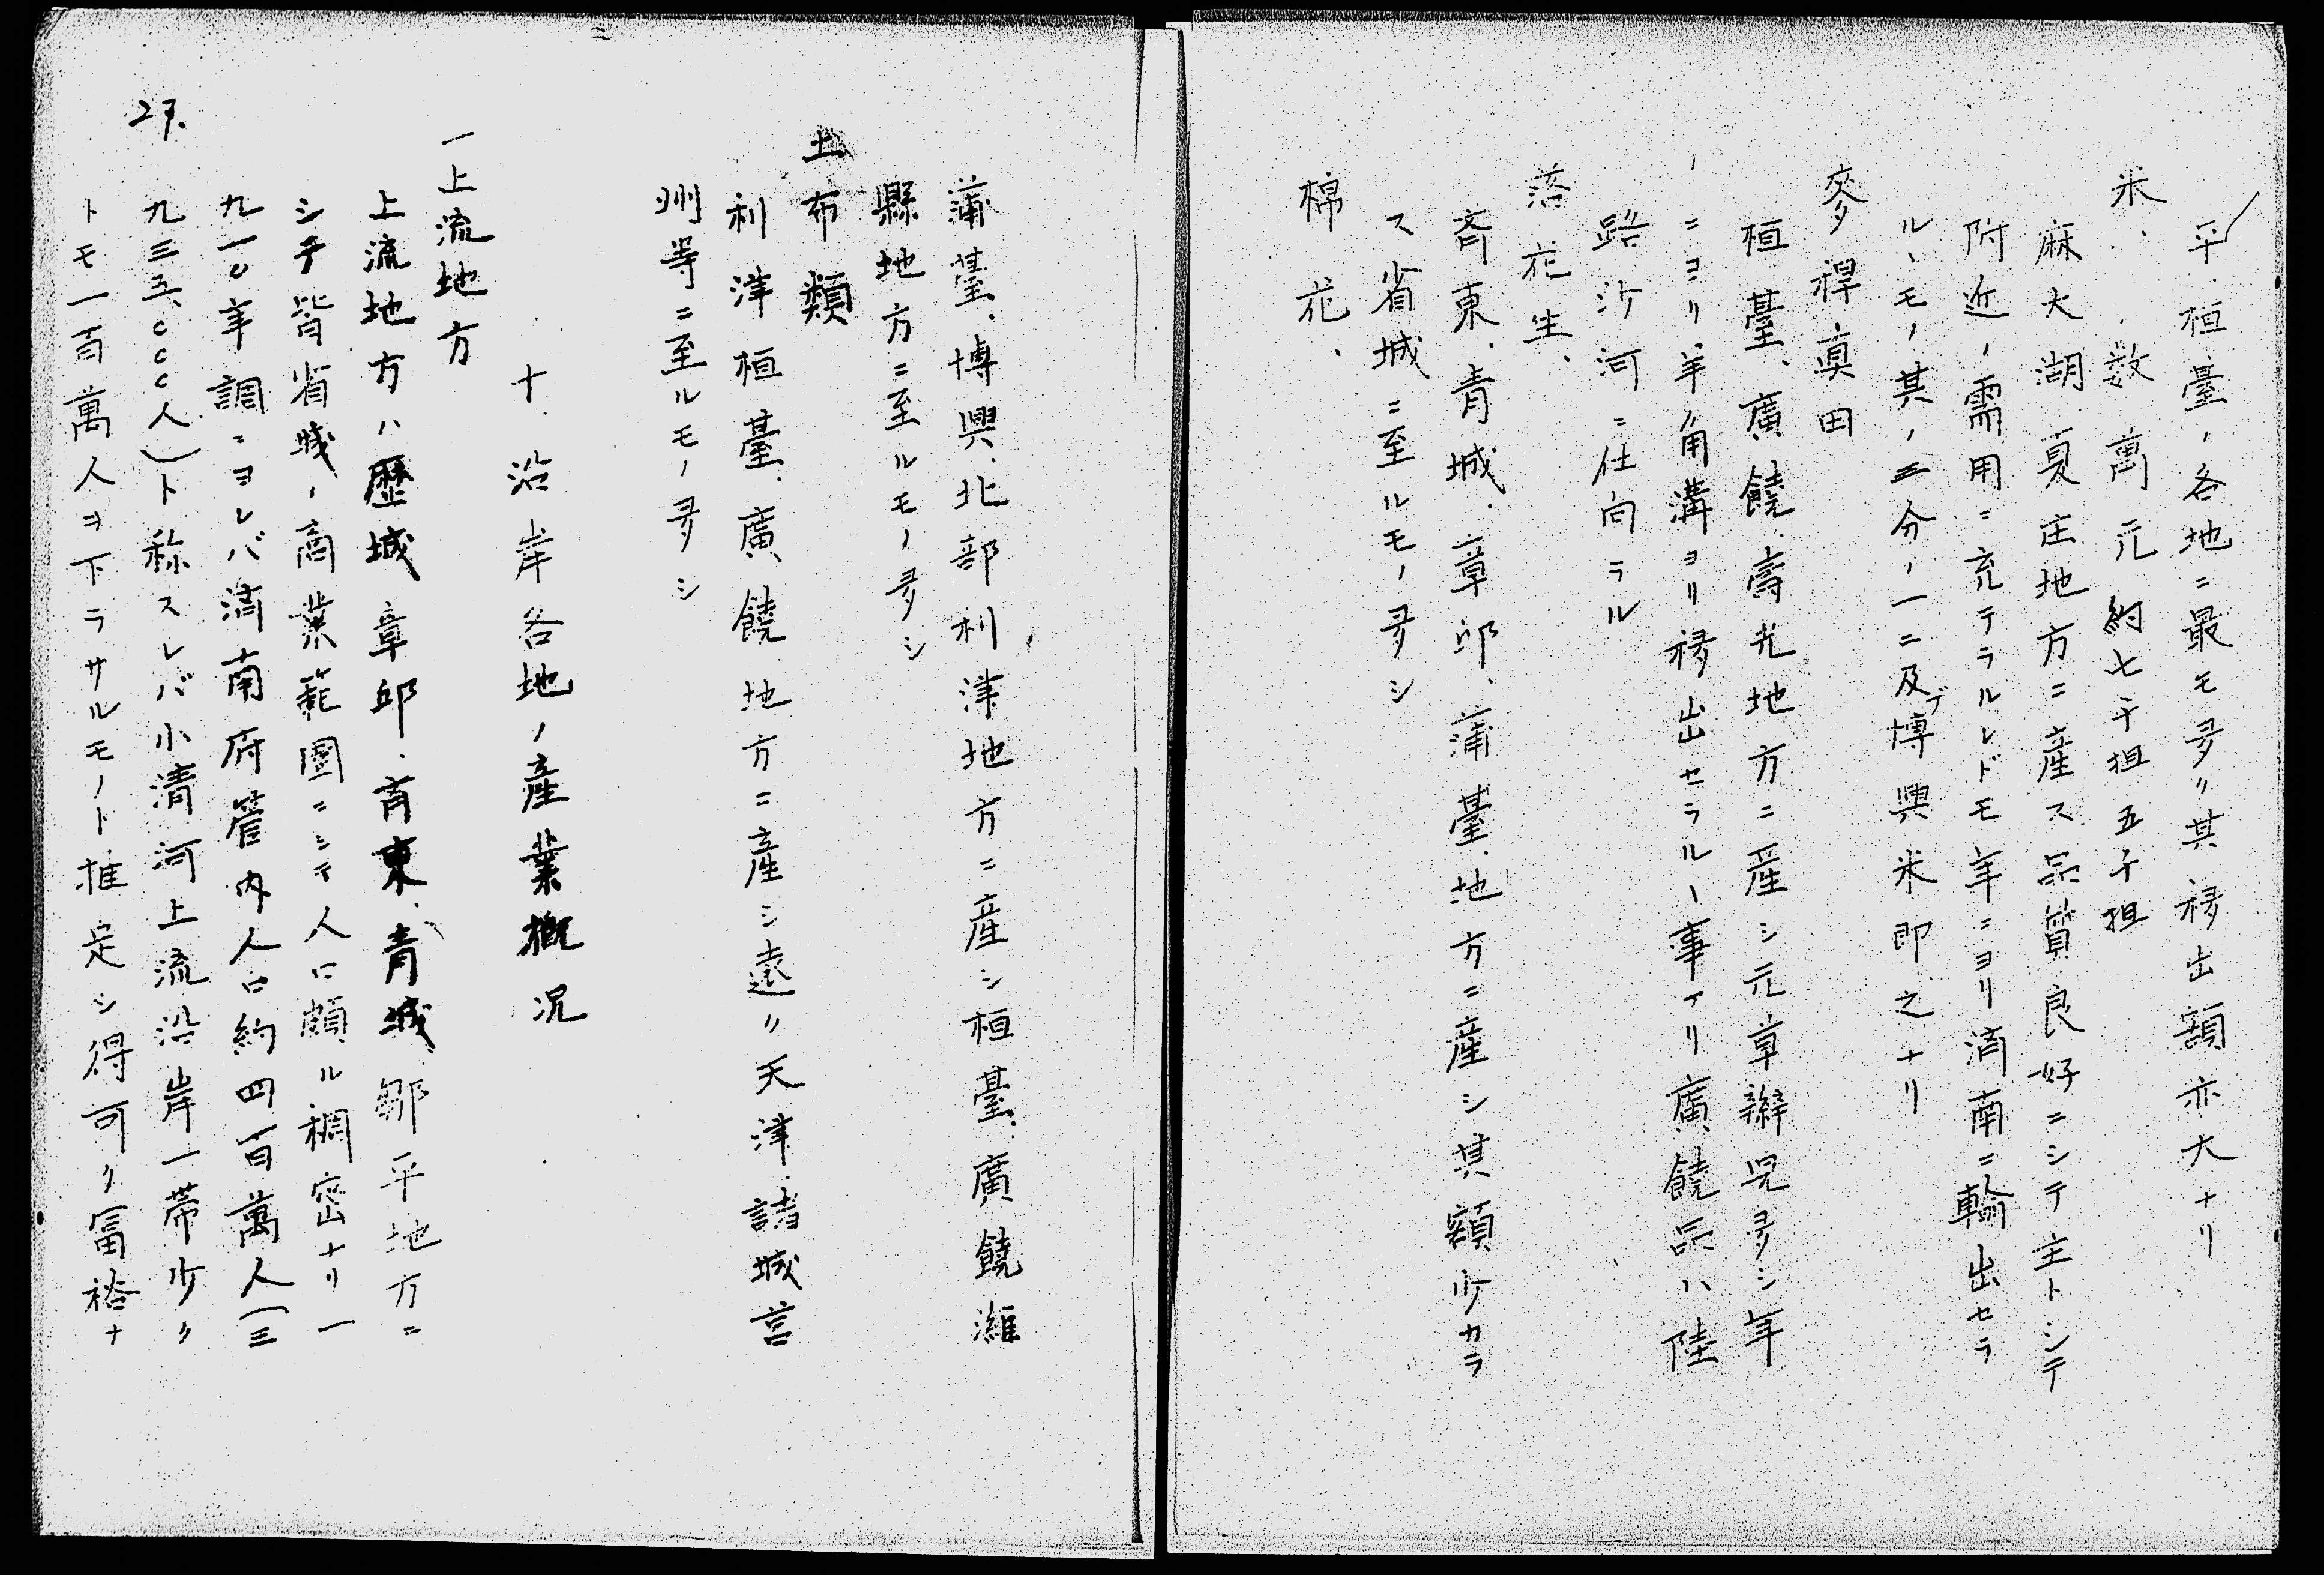 平、桓臺、各地ニ最モ多ク其移出額亦大ナリ
米、數萬元約七千担五千担
麻大湖夏庄地方ニ産ス品質良好ニシテ主トシテ
附近ノ需用ニ充テラルレドモ年ニヨリ済南ニ輸出セラ
ルヽモノ其ノ三分ノ一ニ及ブ博興米即之ナリ
麥稈真田
桓臺、廣饒、壽光地方ニ産シ元草辮児多シ年
ニヨリ羊角溝ヨリ移出セラルヽ事アリ廣饒品ハ陸
路沙河ニ仕向ラル
落花生、
斉東、青城、章邱、蒲臺、地方ニ産シ其額少カラ
ス省城ニ至ルモノ多シ
棉花、
蒲臺、博興、北部利津地方ニ産シ桓臺、廣饒濰
縣地方ニ至ルモノ多シ
土布類
利津桓臺、廣饒地方ニ産シ遠ク天津、諸城莒
州等ニ至ルモノ多シ
十、沿岸各地ノ産業概况
一上流地方
上流地方ハ歴城章邱、斉東、青城、鄒平地方ニ
シテ皆省城ノ商業範圍ニシテ人口頗ル稠密ナリ一
九一〇年調ニヨレバ済南府管内人口約四百萬人(三
九三五、〇〇〇人)ト称スレバ小清河上流沿岸一帯少ク
トモ一百萬人ヲ下ラサルモノト推定シ得可ク冨裕ナ
27.